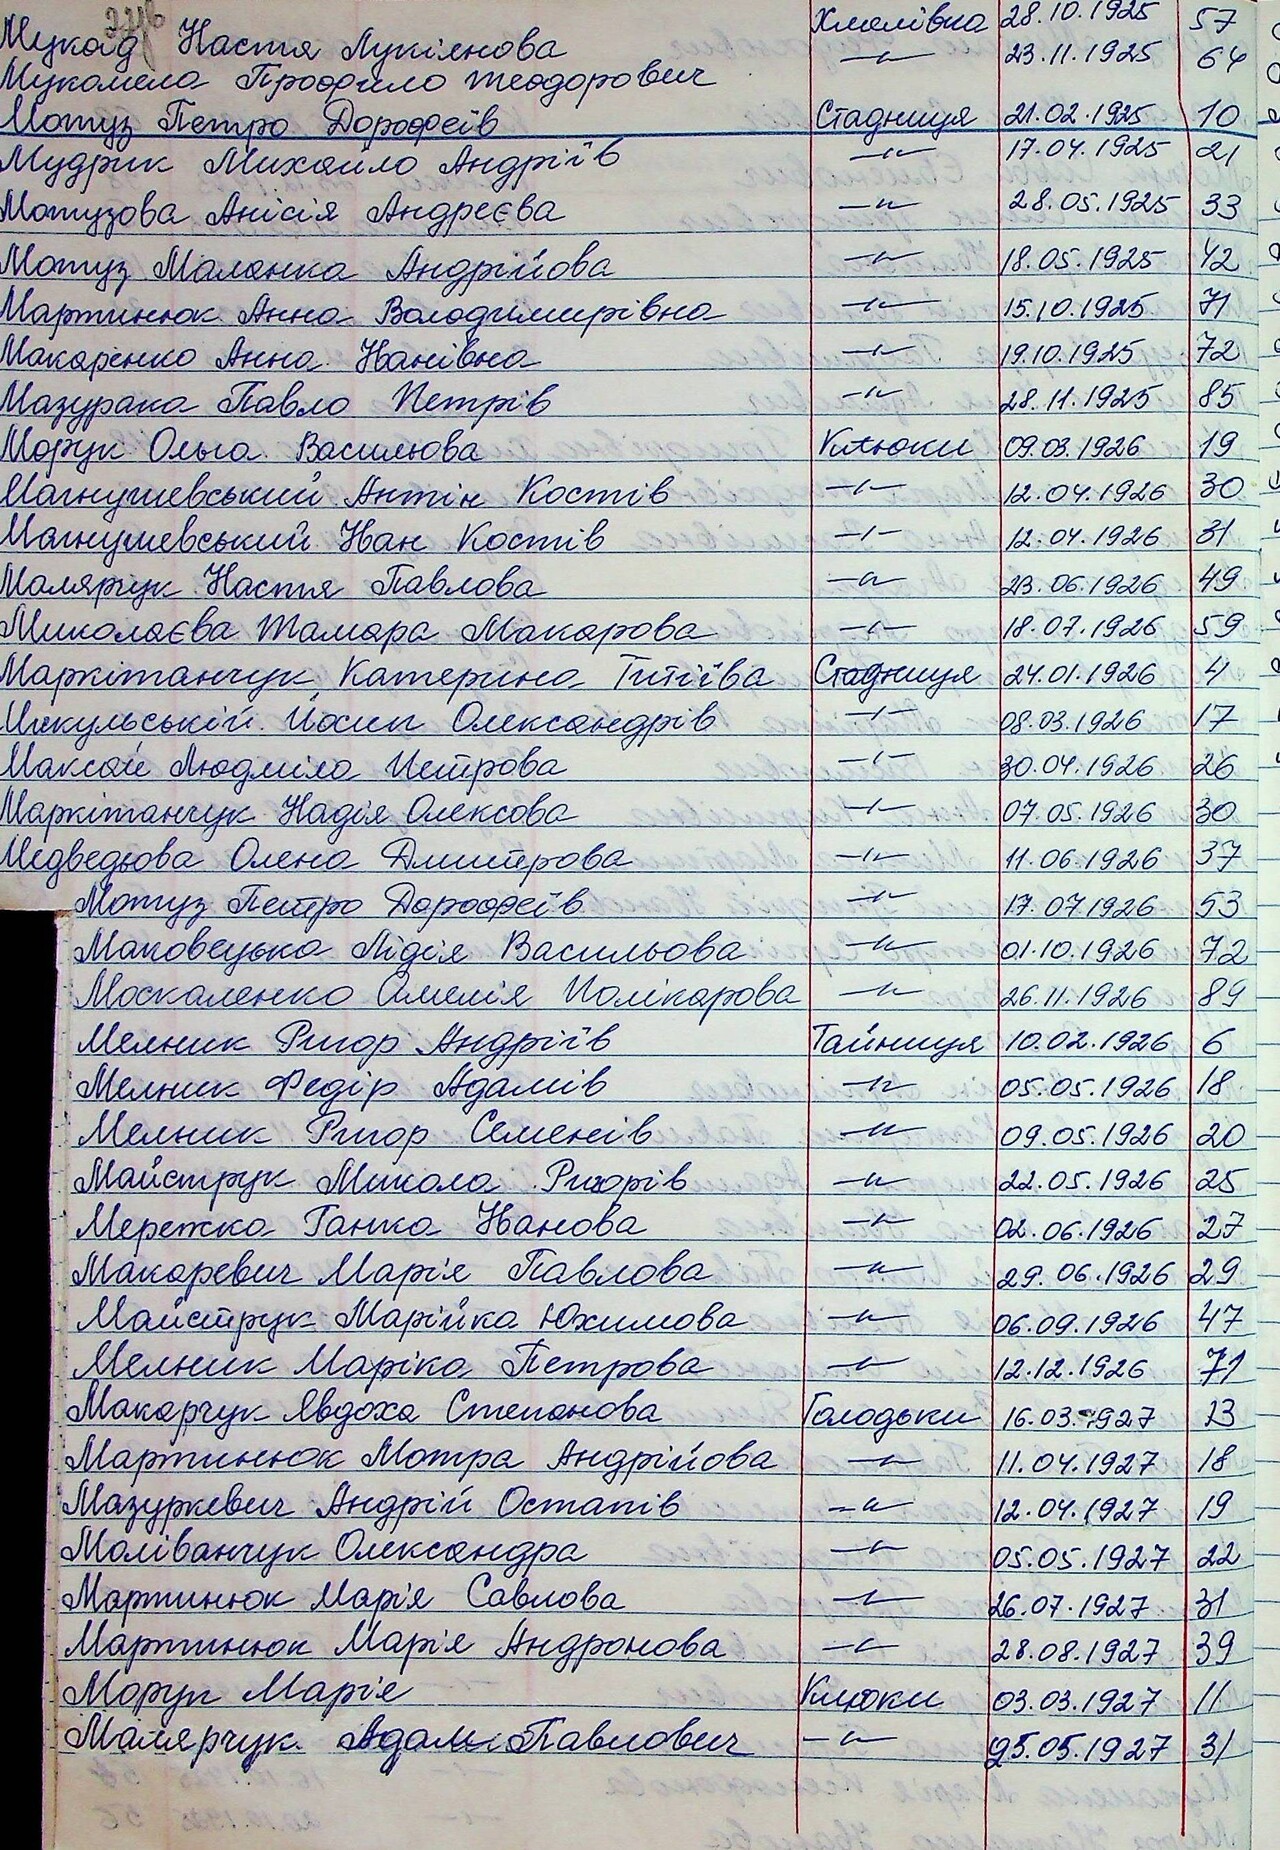 Мукад Настя Лукіянова Хмелівка 28.10.1925 57
Мукомела Профило Теодорович —"— 23.11.1925 64
Мотуз Петро Дорофеїв Стадниця 21.02.1925 10
Мудрик Михайло Андріїв —"— 17.04.1925 21
Мотузова Анісія Андреєва —"— 28.05.1925 33
Мотуз Маланка Андрійова —"— 18.05.1925 42
Мартинюк Анна Володимирівна —"— 15.10.1925 71
Макаренко Анна Іванівна —"— 19.10.1925 72
Мазурака Павло Петрів —"— 28.11.1925 85
Морук Ольга Василюва Клюки 09.03.1926 19
Магнушевський Антін Костів —"— 12.04.1926 30
Магнушевський Іван Костів —"— 12.04.1926 31
Малярчук Настя Павлова —"— 23.06.1926 49
Миколаєва Тамара Макарова —"— 18.07.1926 59
Маркітанчук Катерина Титіїва Стадниця 24.01.1926 4
Микульській Йосип Олександрів —"— 08.03.1926 17
Максай Людміла Петрова —"— 30.04.1926 26
Маркітанчук Надія Олексова —"— 07.05.1926 30
Медведьова Олена Дмитрова —"— 11.06.1926 37
Мотуз Петро Дорофеїв —"— 17.07.1926 53
Маковецька Лідія Васильова —"— 01.10.1926 72
Москаленко Амелія Полікарова —"— 26.11.1926 89
Мелник Ригор Андріїв Тайниця 10.02.1926 6
Мелник Федір Адамів —"— 05.05.1926 18
Мелник Ригор Семенів —"— 09.05.1926 20
Майструк Микола Ригорів —"— 22.05.1926 25
Мережко Ганка Іванова —"— 02.06.1926 27
Макаревич Марія Павлова —"— 29.06.1926 29
Майструк Марійка Юхимова —"— 06.09.1926 47
Мелник Маріка Петрова —"— 12.12.1926 71
Макарчук Явдоха Степанова Голодьки 16.03.1927 13
Мартинюк Мотра Андрійова —"— 11.04.1927 18
Мазуркевич Андрій Остапів —"— 12.04.1927 19
Моліванчук Олександра —"— 05.05.1927 22
Мартинюк Марія Савлова —"— 26.07.1927 31
Мартинюк Марія Андронова —"— 28.08.1927 39
Морук Марія Клюки 03.03.1927 11
Малярчук Адам Павлович —"— 25.05.1927 31